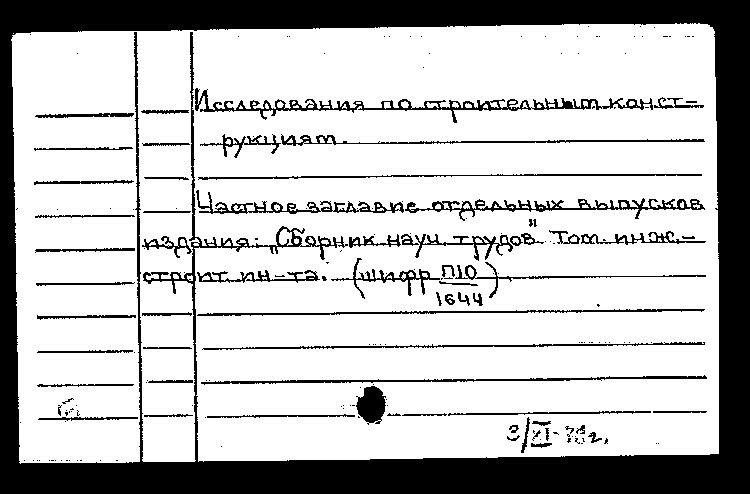 Исследования по строительным конст-
рукциям.
Частное заглавие отдельных выпусков
издания: „Сборник науч. трудов" Том. инж.-
строит. ин-та. (шифр П10
1644)
3/XI-